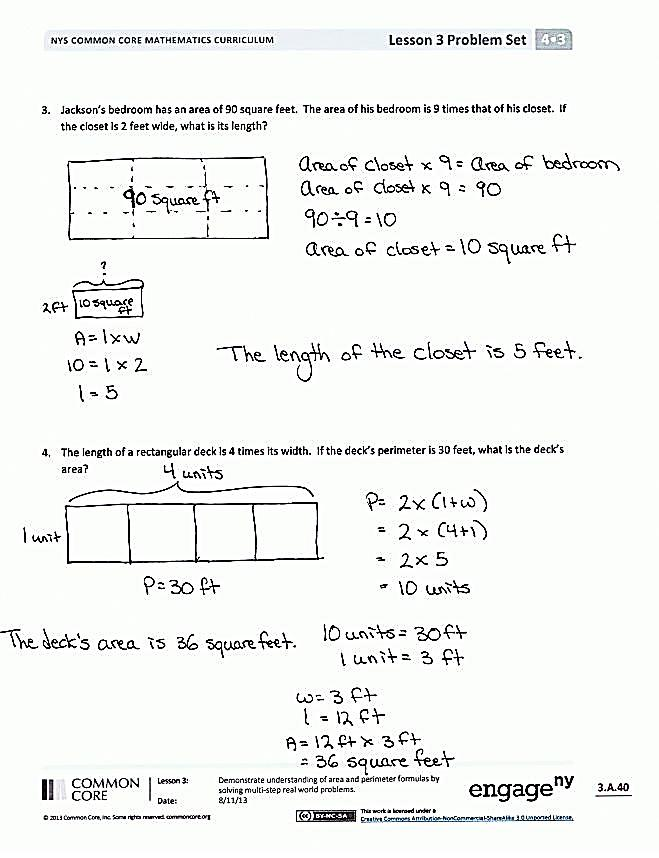 NYS COMMON CORE MATHEMATICS CURRICULUM
Lesson 3 Problem Set 4•3
3. Jackson's bedroom has an area of 90 square feet. The area of his bedroom is 9 times that of his closet. If
the closet is 2 feet wide, what is its length?
90 square ft
Area of closet x 9 = Area of bedroom
Area of closet x 9 = 90
90 ÷ 9 = 10
Area of closet = 10 square ft
?
2ft
10 square
ft
A = l x w
10 = l x 2
l = 5
The length of the closet is 5 feet.
4. The length of a rectangular deck is 4 times its width. If the deck's perimeter is 30 feet, what is the deck's
area?
4 units
1 unit
P = 30 ft
P = 2 x (l + w)
= 2 x (4+1)
= 2 x 5
= 10 units
The deck's area is 36 square feet.
10 units = 30 ft
1 unit = 3 ft
w = 3 ft
l = 12 ft
A = 12 ft x 3 ft
= 36 square feet
COMMON
CORE
Lesson 3:
Date:
Demonstrate understanding of area and perimeter formulas by
solving multi-step real world problems.
8/11/13
engage ny
3.A.40
© 2013 Common Core, Inc. Some rights reserved. commoncore.org
(cc) BY-NC-SA
This work is licensed under a
Creative Commons Attribution-NonCommercial-ShareAlike 3.0 Unported License.